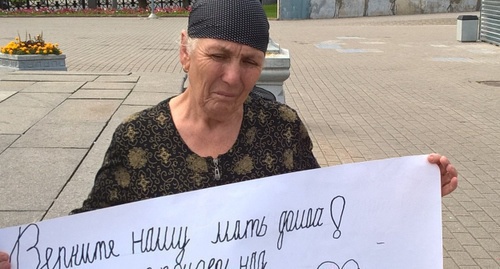 Верните нашу мать домой!
над